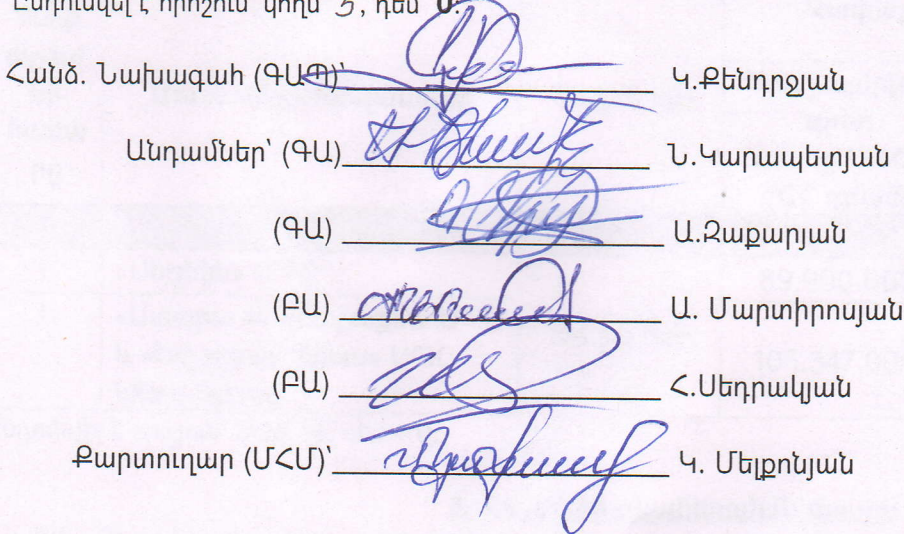 Ընդունվել է որոշում կողմ 5, դեմ 0:
Հանձ. Նախագահ (ԳԱՊ)՝ Կ.Քենդրջյան
Անդամներ՝ (ԳԱ) Ն.Կարապետյան
(ԳԱ) Ա.Զաքարյան
(ԲԱ) Ա. Մարտիրոսյան
(ԲԱ) Հ.Սեդրակյան
Քարտուղար (ՄՀՄ)՝ Կ. Մելքոնյան